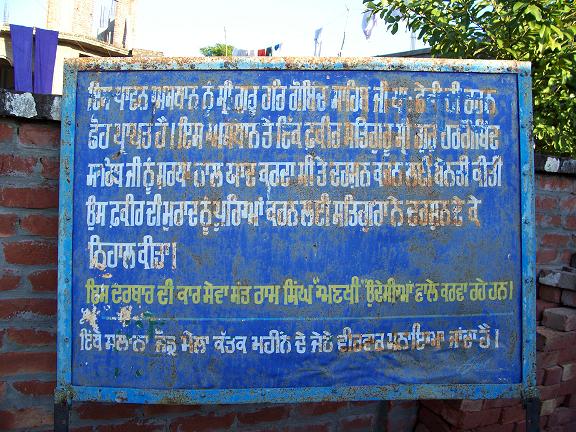 ਇਸ ਪਾਵਨ ਅਸਥਾਨ ਨੂੰ ਸ੍ਰੀ ਗੁਰੂ ਹਰਿ ਗੋਬਿੰਦ ਸਾਹਿਬ ਜੀ ਦੀ ਚਰਨ
ਛੋਹ ਪ੍ਰਾਪਤ ਹੈ। ਇਸ ਅਸਥਾਨ ਤੇ ਇੱਕ ਫਕੀਰ ਸਤਿਗੁਰੂ ਸ੍ਰੀ ਗੁਰੂ ਹਰਗੋਬਿੰਦ
ਸਾਹਿਬ ਜੀ ਨੂੰ ਸ਼ਰਧਾ ਨਾਲ ਯਾਦ ਕਰਦਾ ਸੀ ਤੇ ਦਰਸ਼ਨ ਕਰਨ ਲਈ ਬੇਨਤੀ ਕੀਤੀ
ਉਸ ਫ਼ਕੀਰ ਦੀ ਮੁਰਾਦ ਨੂੰ ਪੂਰਿਆਂ ਕਰਨ ਲਈ ਸਤਿਗੁਰਾਂ ਨੇ ਦਰਸ਼ਨ ਦੇ ਕੇ
ਨਿਹਾਲ ਕੀਤਾ।
ਇਸ ਦਰਬਾਰ ਦੀ ਕਾਰ ਸੇਵਾ ਸੰਤ ਰਾਮ ਸਿੰਘ "ਅਣਖੀ" ਉਦੋਸੀਆਂ ਵਾਲੇ ਕਰਵਾ ਰਹੇ ਹਨ।
ਇਥੇ ਸਲਾਨਾ ਜੋੜ ਮੇਲਾ ਕੱਤਕ ਮਹੀਨੇ ਦੇ ਜੇਠੇ ਵੀਰਵਾਰ ਮਨਾਇਆ ਜਾਂਦਾ ਹੈ।